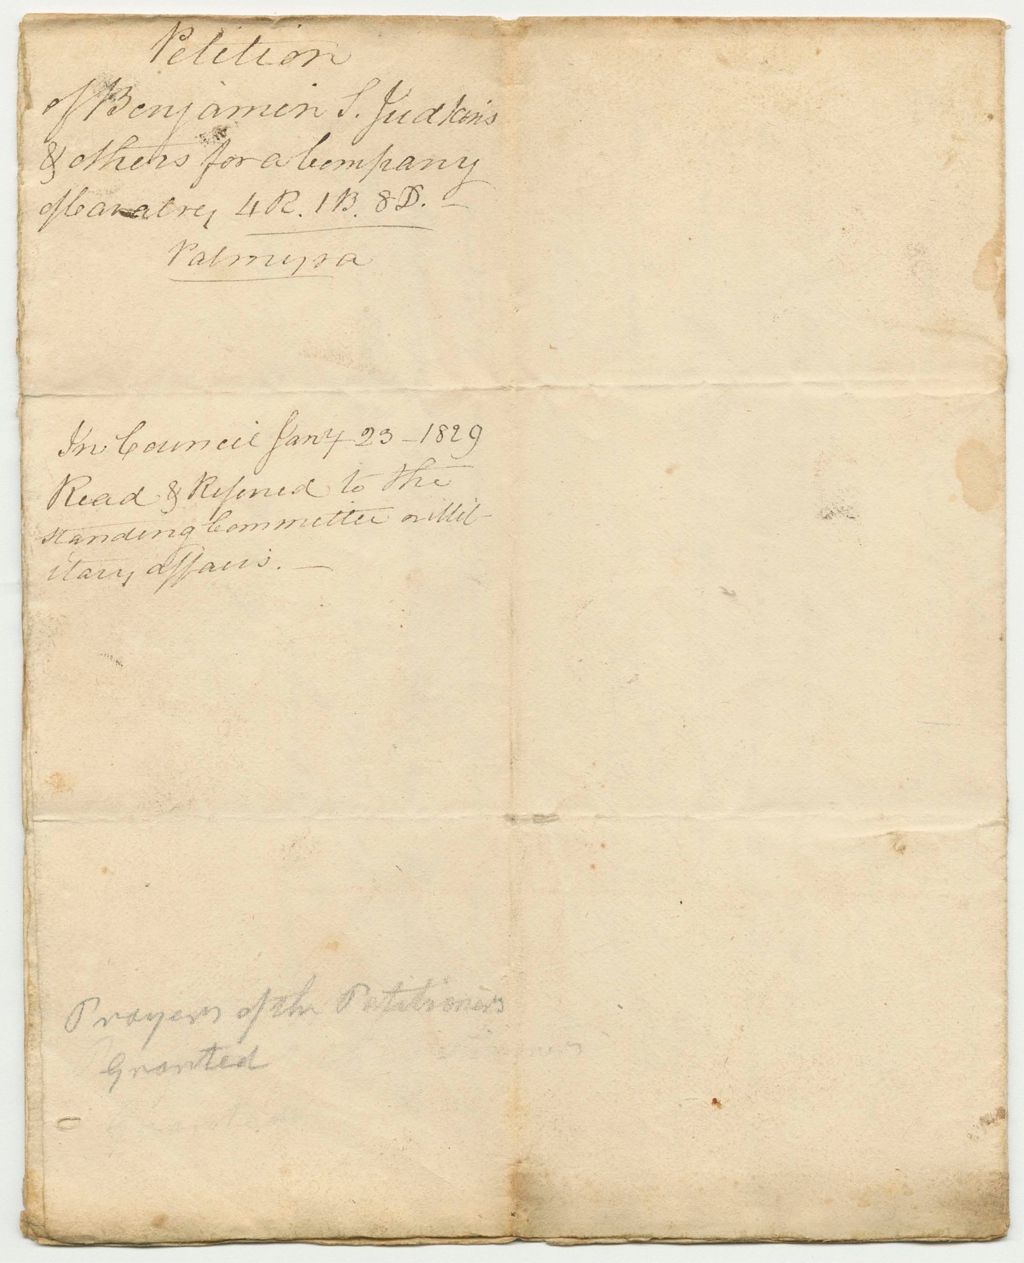 Petition
of Benjamin S. Judkins
& others for a Company
of Cavalry, 4 R. 1 B. 8 D.
Palmyra
In Council Jany 23 - 1829
Read & Referred to the
standing Committee on Mil-
itary affairs.
Prayers of the Petitioners
Granted